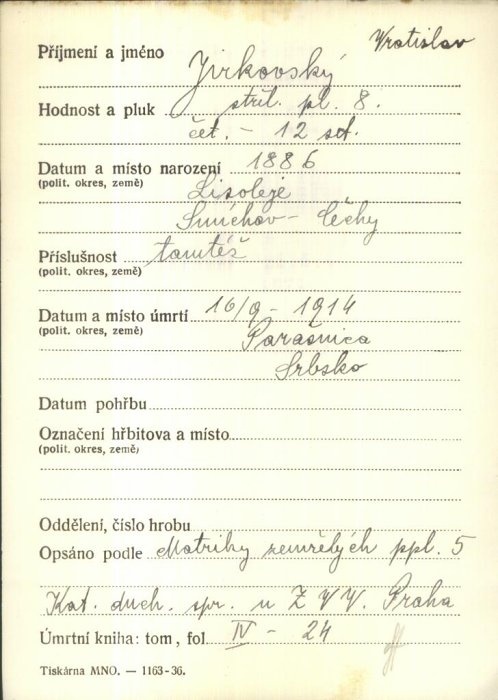 Vratislav
Příjmení a jméno Jirkovský
Hodnost a pluk stříl. pl. 8.
čet. - 12 set.
Datum a místo narození 1886
(polit. okres, země) Lisoleje
Smíchov - Čechy
Příslušnost tamtéž
(polit. okres, země)
Datum a místo úmrtí 16/9 - 1914
(polit. okres, země) Parašnica
Srbsko
Datum pohřbu
Označení hřbitova a místo
(polit. okres, země)
Oddělení, číslo hrobu
Opsáno podle Matriky zemřelých ppl. 5
Kat. duch. spr. u Z V V. Praha
Úmrtní kniha: tom, fol. IV - 24
Tiskárna MNO. — 1163-36.